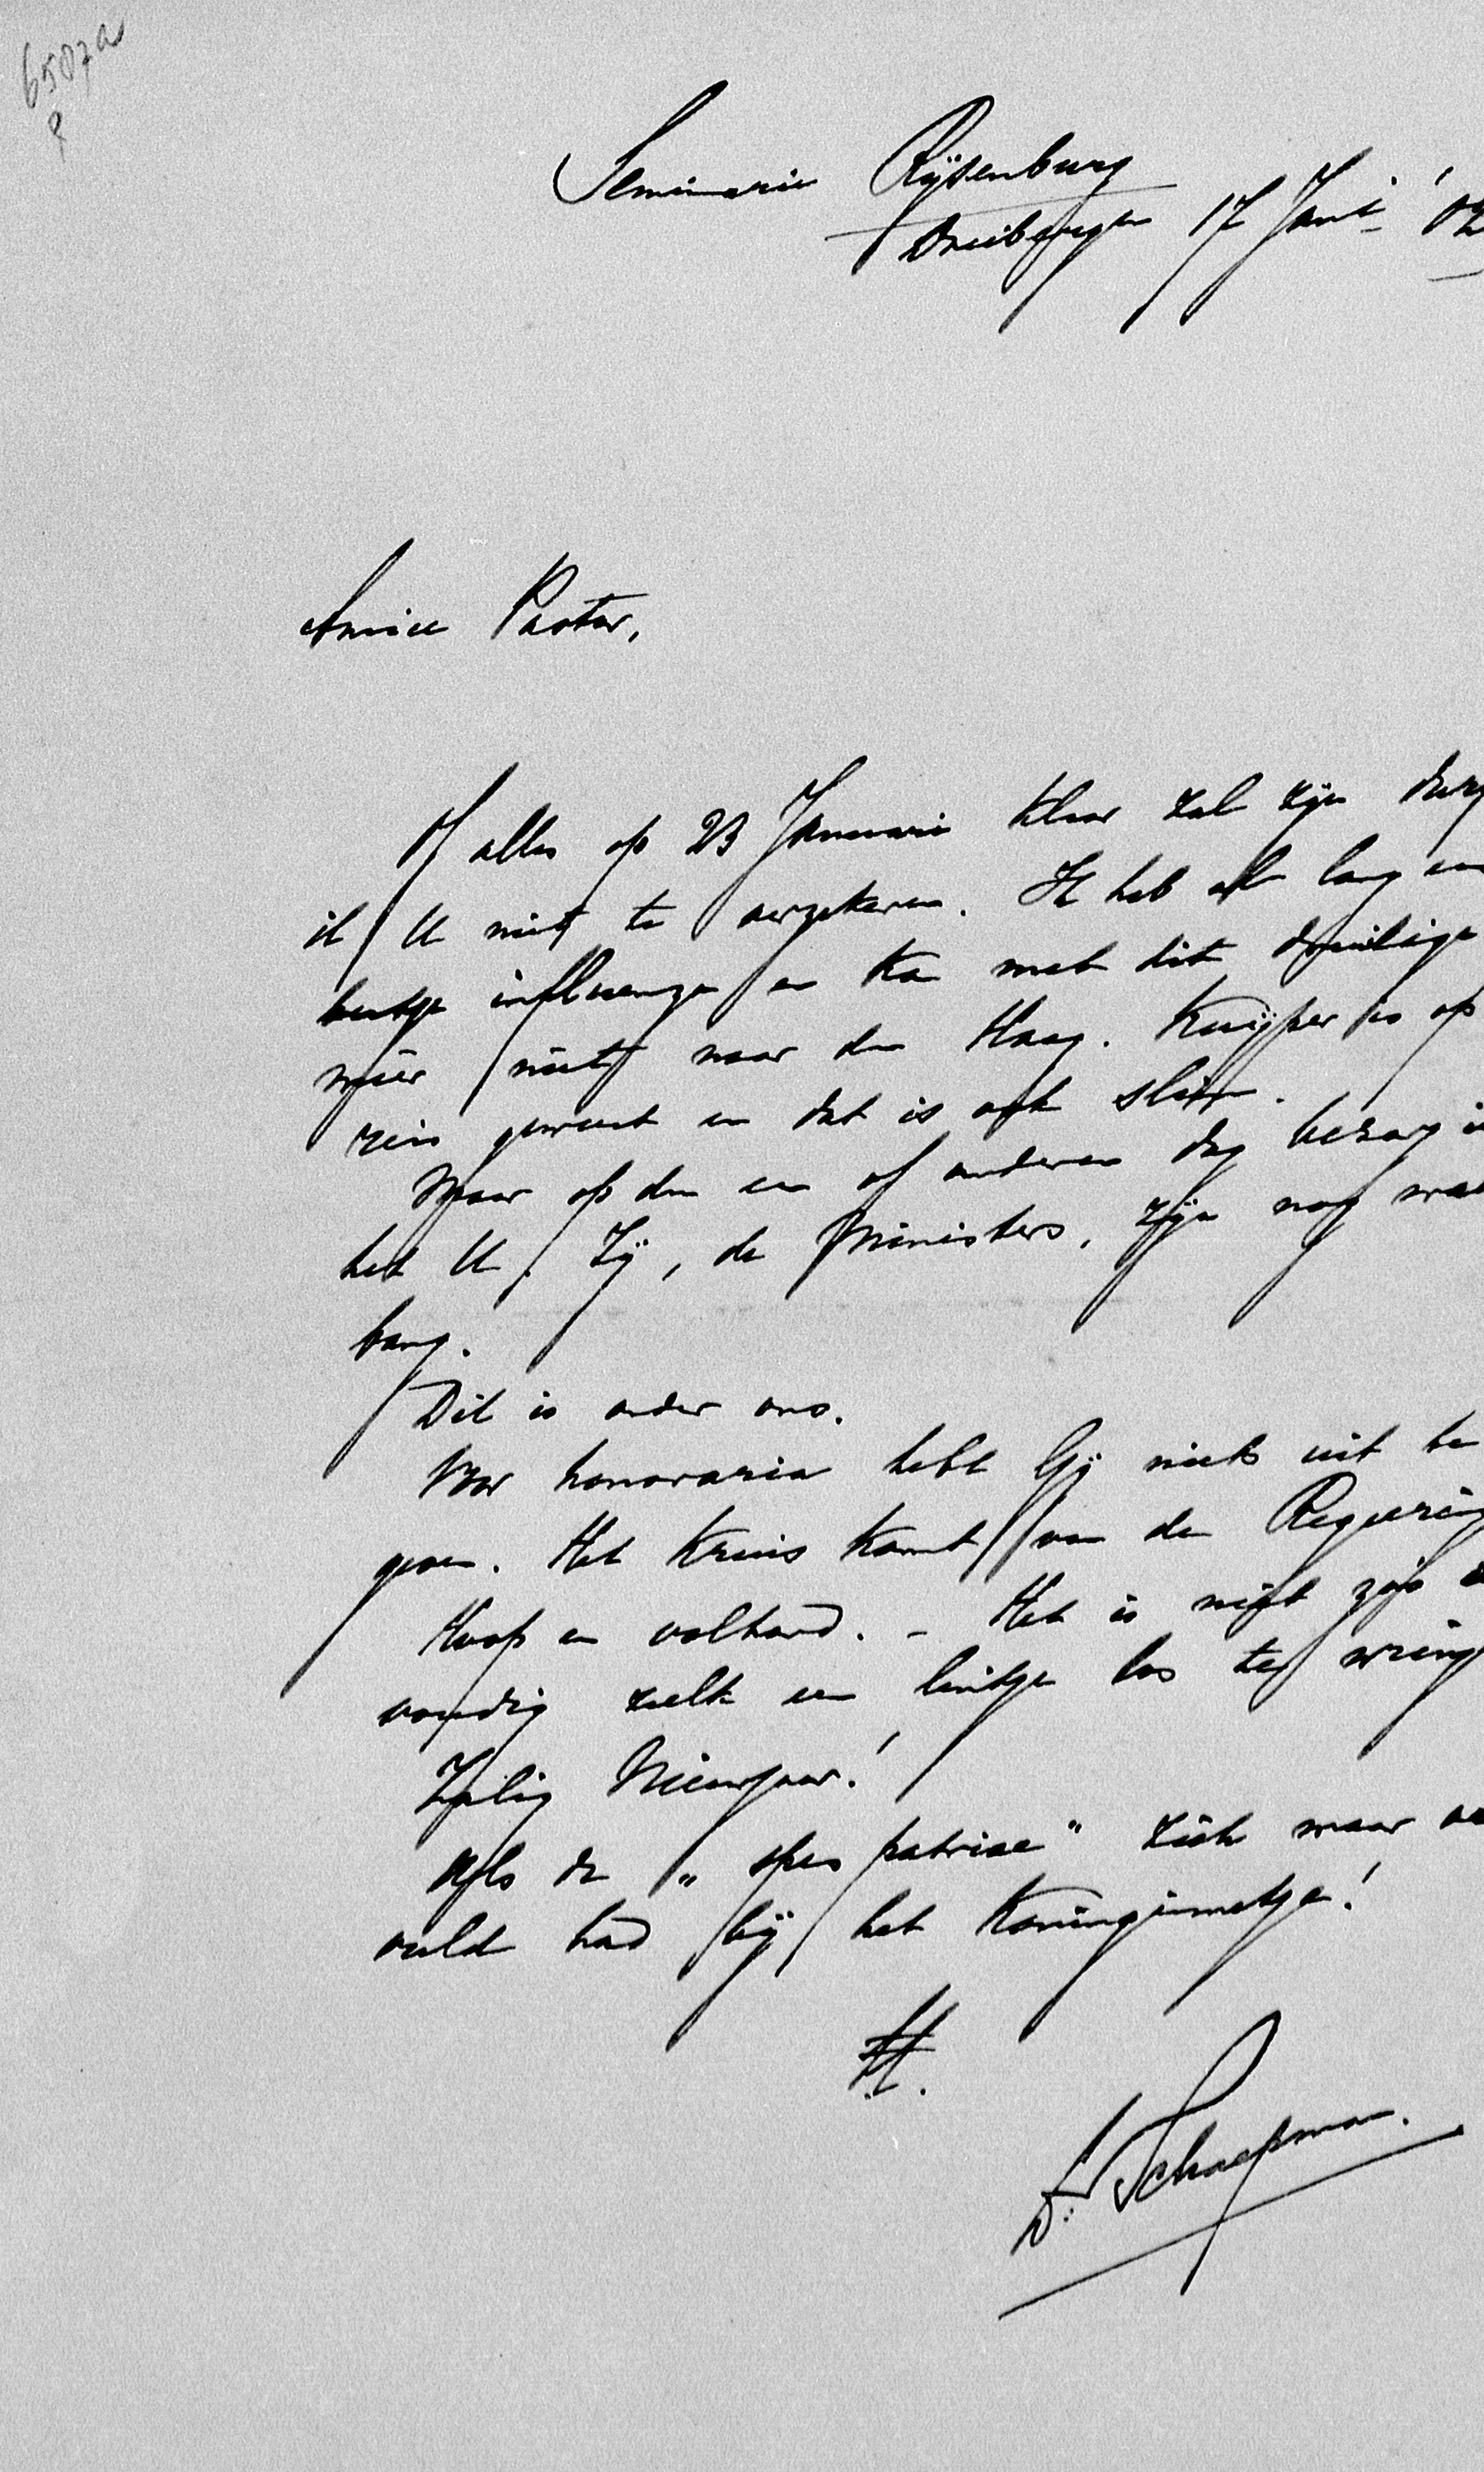 6507a
Seminarie Rijsenburg
Driebergen 17 Jan. '02
Amice Pastor,
Of alles op 23 Januari klaar zal zijn durf
ik U niet te verzekeren. Ik heb al lang een
beetje influenza en kan met dit druilige
weer niet naar den Haag. Kuijper is op
reis geweest en dat is ook slim.
Maar op den een of anderen dag bezorg ik
het U. Zij, de Ministers, zijn nog wat
bang.
Dit is onder ons.
Voor honoraria hebt Gij niets uit te
geven. Het Kruis komt van de Regeering
Hoop en volhard. - Het is niet zoo een
voudig zulk een lintje los te wring
Zalig Nieuwjaar!
Als de „spes patriae" zich maar ver
vuld had bij het Koninginnetje!
tt.
Dr. Schaepman.